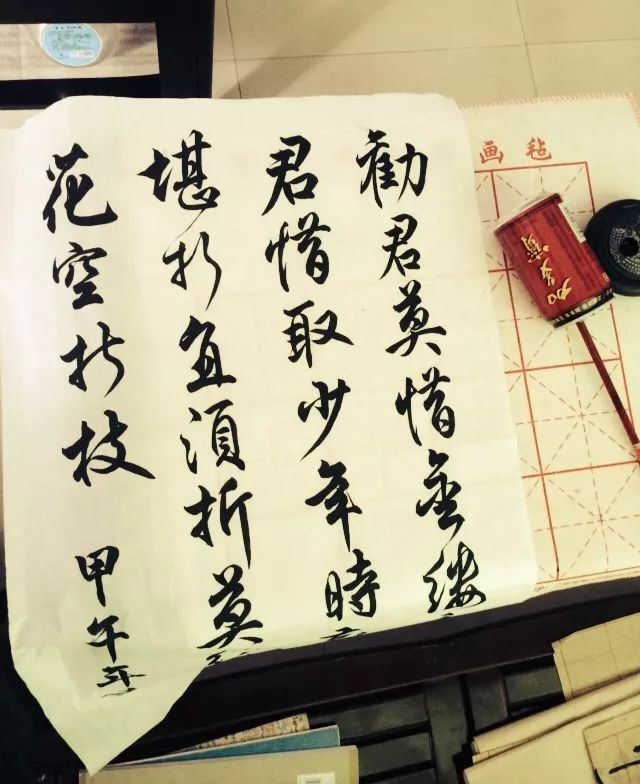 勸君莫惜金缕
君惜取少年時
堪折直須折莫
花空折枝
甲午年
画毡
加多寶